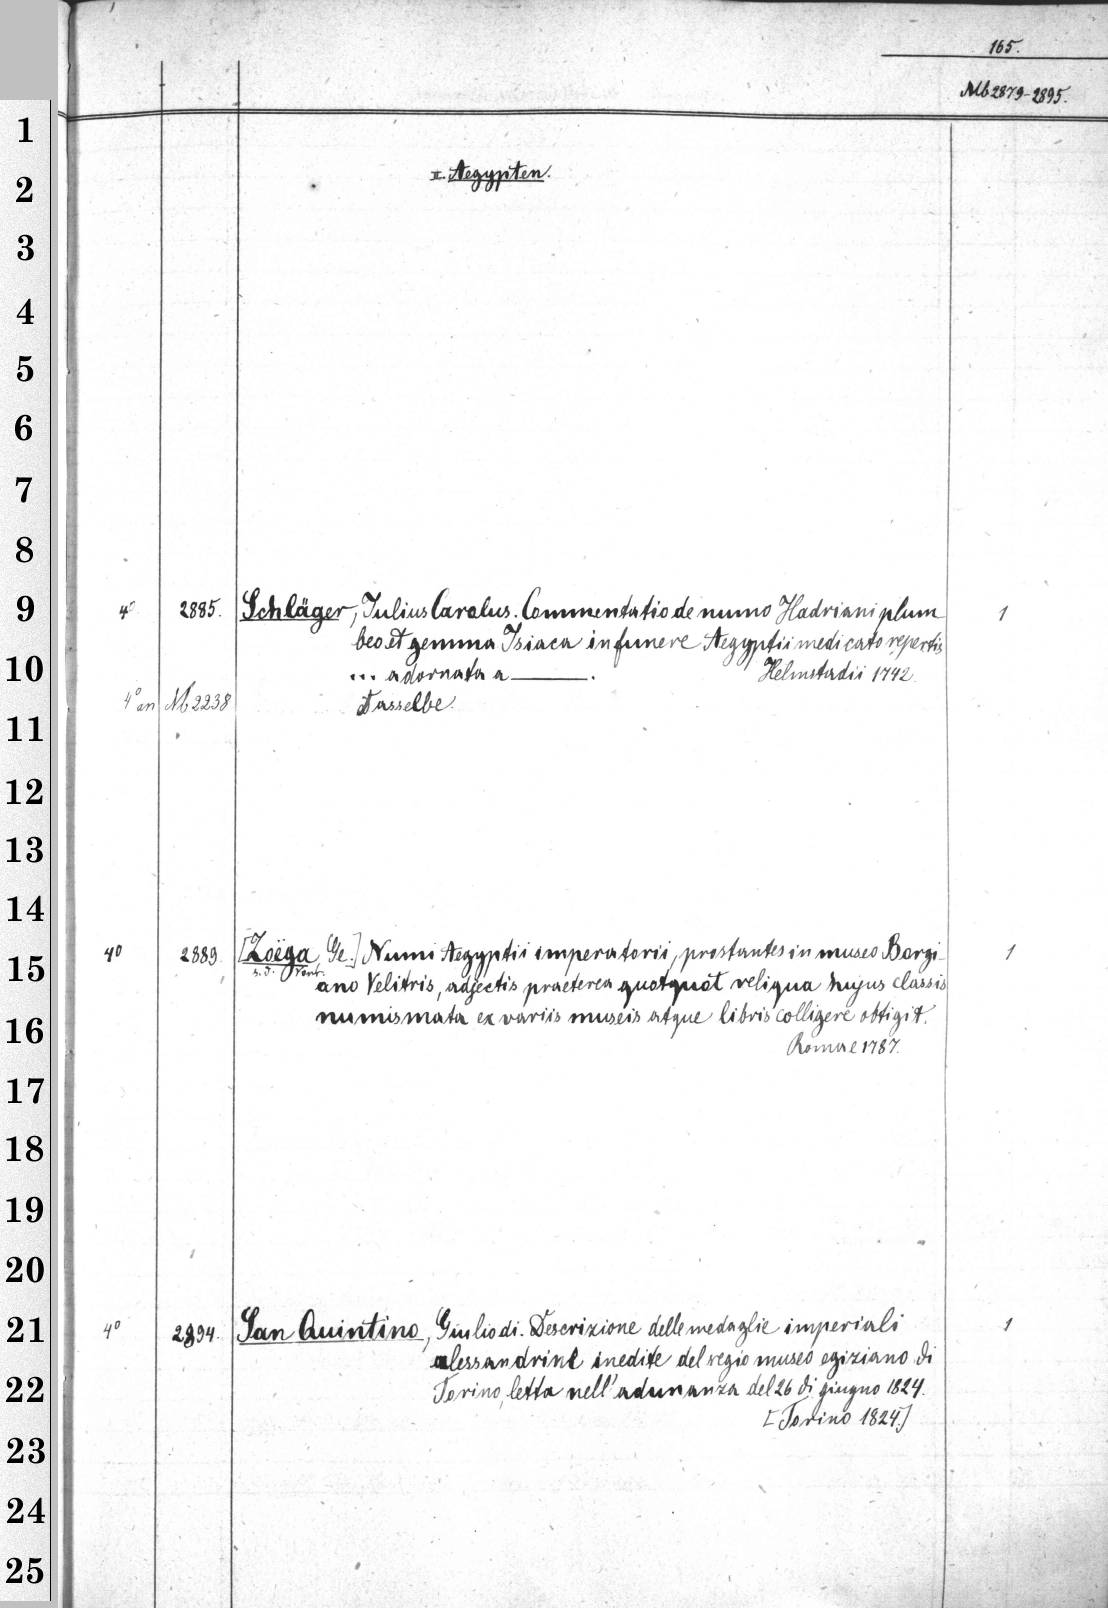 165.
Mb 2879-2895.
1
2
II. Aegypten.
3
4
5
6
7
8
9 4° 2885. Schläger, Julius Carolus. Commentatio de numo Hadriani plum- 1
beo et gemma Isiaca in funere Aegyptii medicato repertis
10 ... adornata a ———. Helmstadii 1742.
4° an Mb 2238 Dasselbe.
11
12
13
14
15 4° 2889. [Zoëga, Ge.] Numi Aegyptii imperatorii, prostantes in museo Borgi- 1
s. d.
ano Velitris, adjectis praeterea quotquot reliqua hujus classis
16 numismata ex variis museis atque libris colligere obtigit.
Romae 1787.
17
18
19
20
21 4° 2894. San Quintino, Giulio di. Descrizione delle medaglie imperiali 1
alessandrine inedite del regio museo egiziano di
22 Torino, letta nell'adunanza del 26 di giugno 1824.
[Torino 1824.]
23
24
25